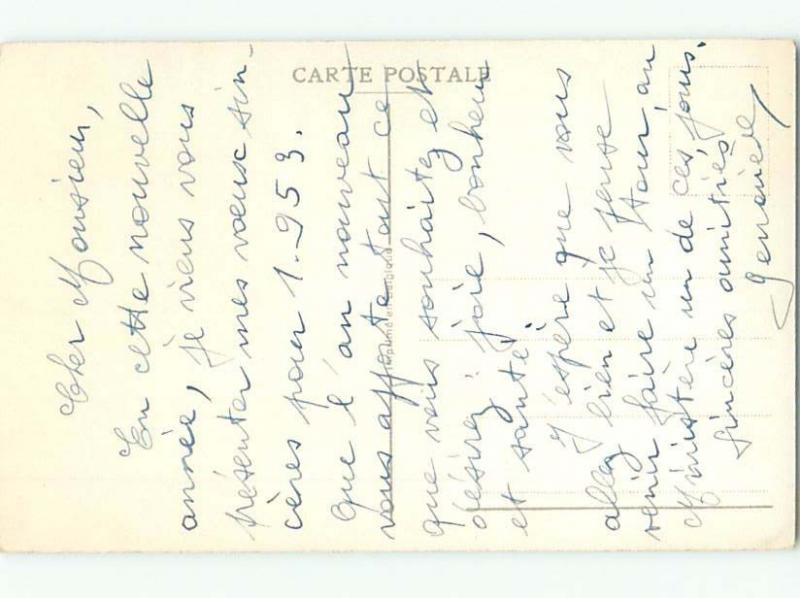 CARTE POSTALE
Cher Monsieur,
En cette nouvelle
année, je viens vous
présenter mes vœux sin-
cères pour 1.953.
Que l'an nouveau
vous apporte tout ce
que vous souhaitez et
désirez : joie, bonheur
et santé !
J'espère que vous
allez bien et je pense
venir faire un tour, au
Ministère un de ces jours.
Sincères amitiés
Geneviève